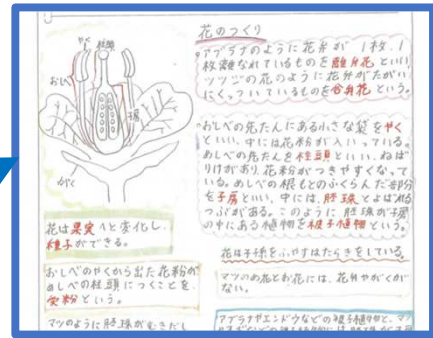 花のつくり
アブラナのように花弁が1枚、1
枚離れているものを離弁花といい
ツツジの花のように花弁がたがい
にくっついているものを合弁花という。
やく
柱頭
おしべ
子房
がく
おしべの先たんにある小さな袋をやく
といい、中には花粉が入いっている。
めしべの先たんを柱頭といい、ねば
りけがあり花粉がつきやすくなって
いる。めしべの根もとのふくらんだ部分
を子房といい、中には、胚珠とよばれる
つぶがある。このように胚珠が子房
の中にある植物を被子植物という。
花は果実へと変化し、
種子ができる。
花は子孫をふやすはたらきをしている。
おしべのやくから出た花粉が
めしべの柱頭につくことを、
受粉という。
マツのめ花とお花には、花弁やがくが
ない。
マツのように胚珠がむきだし
アブラナやエンドウなどの被子植物と、マツ